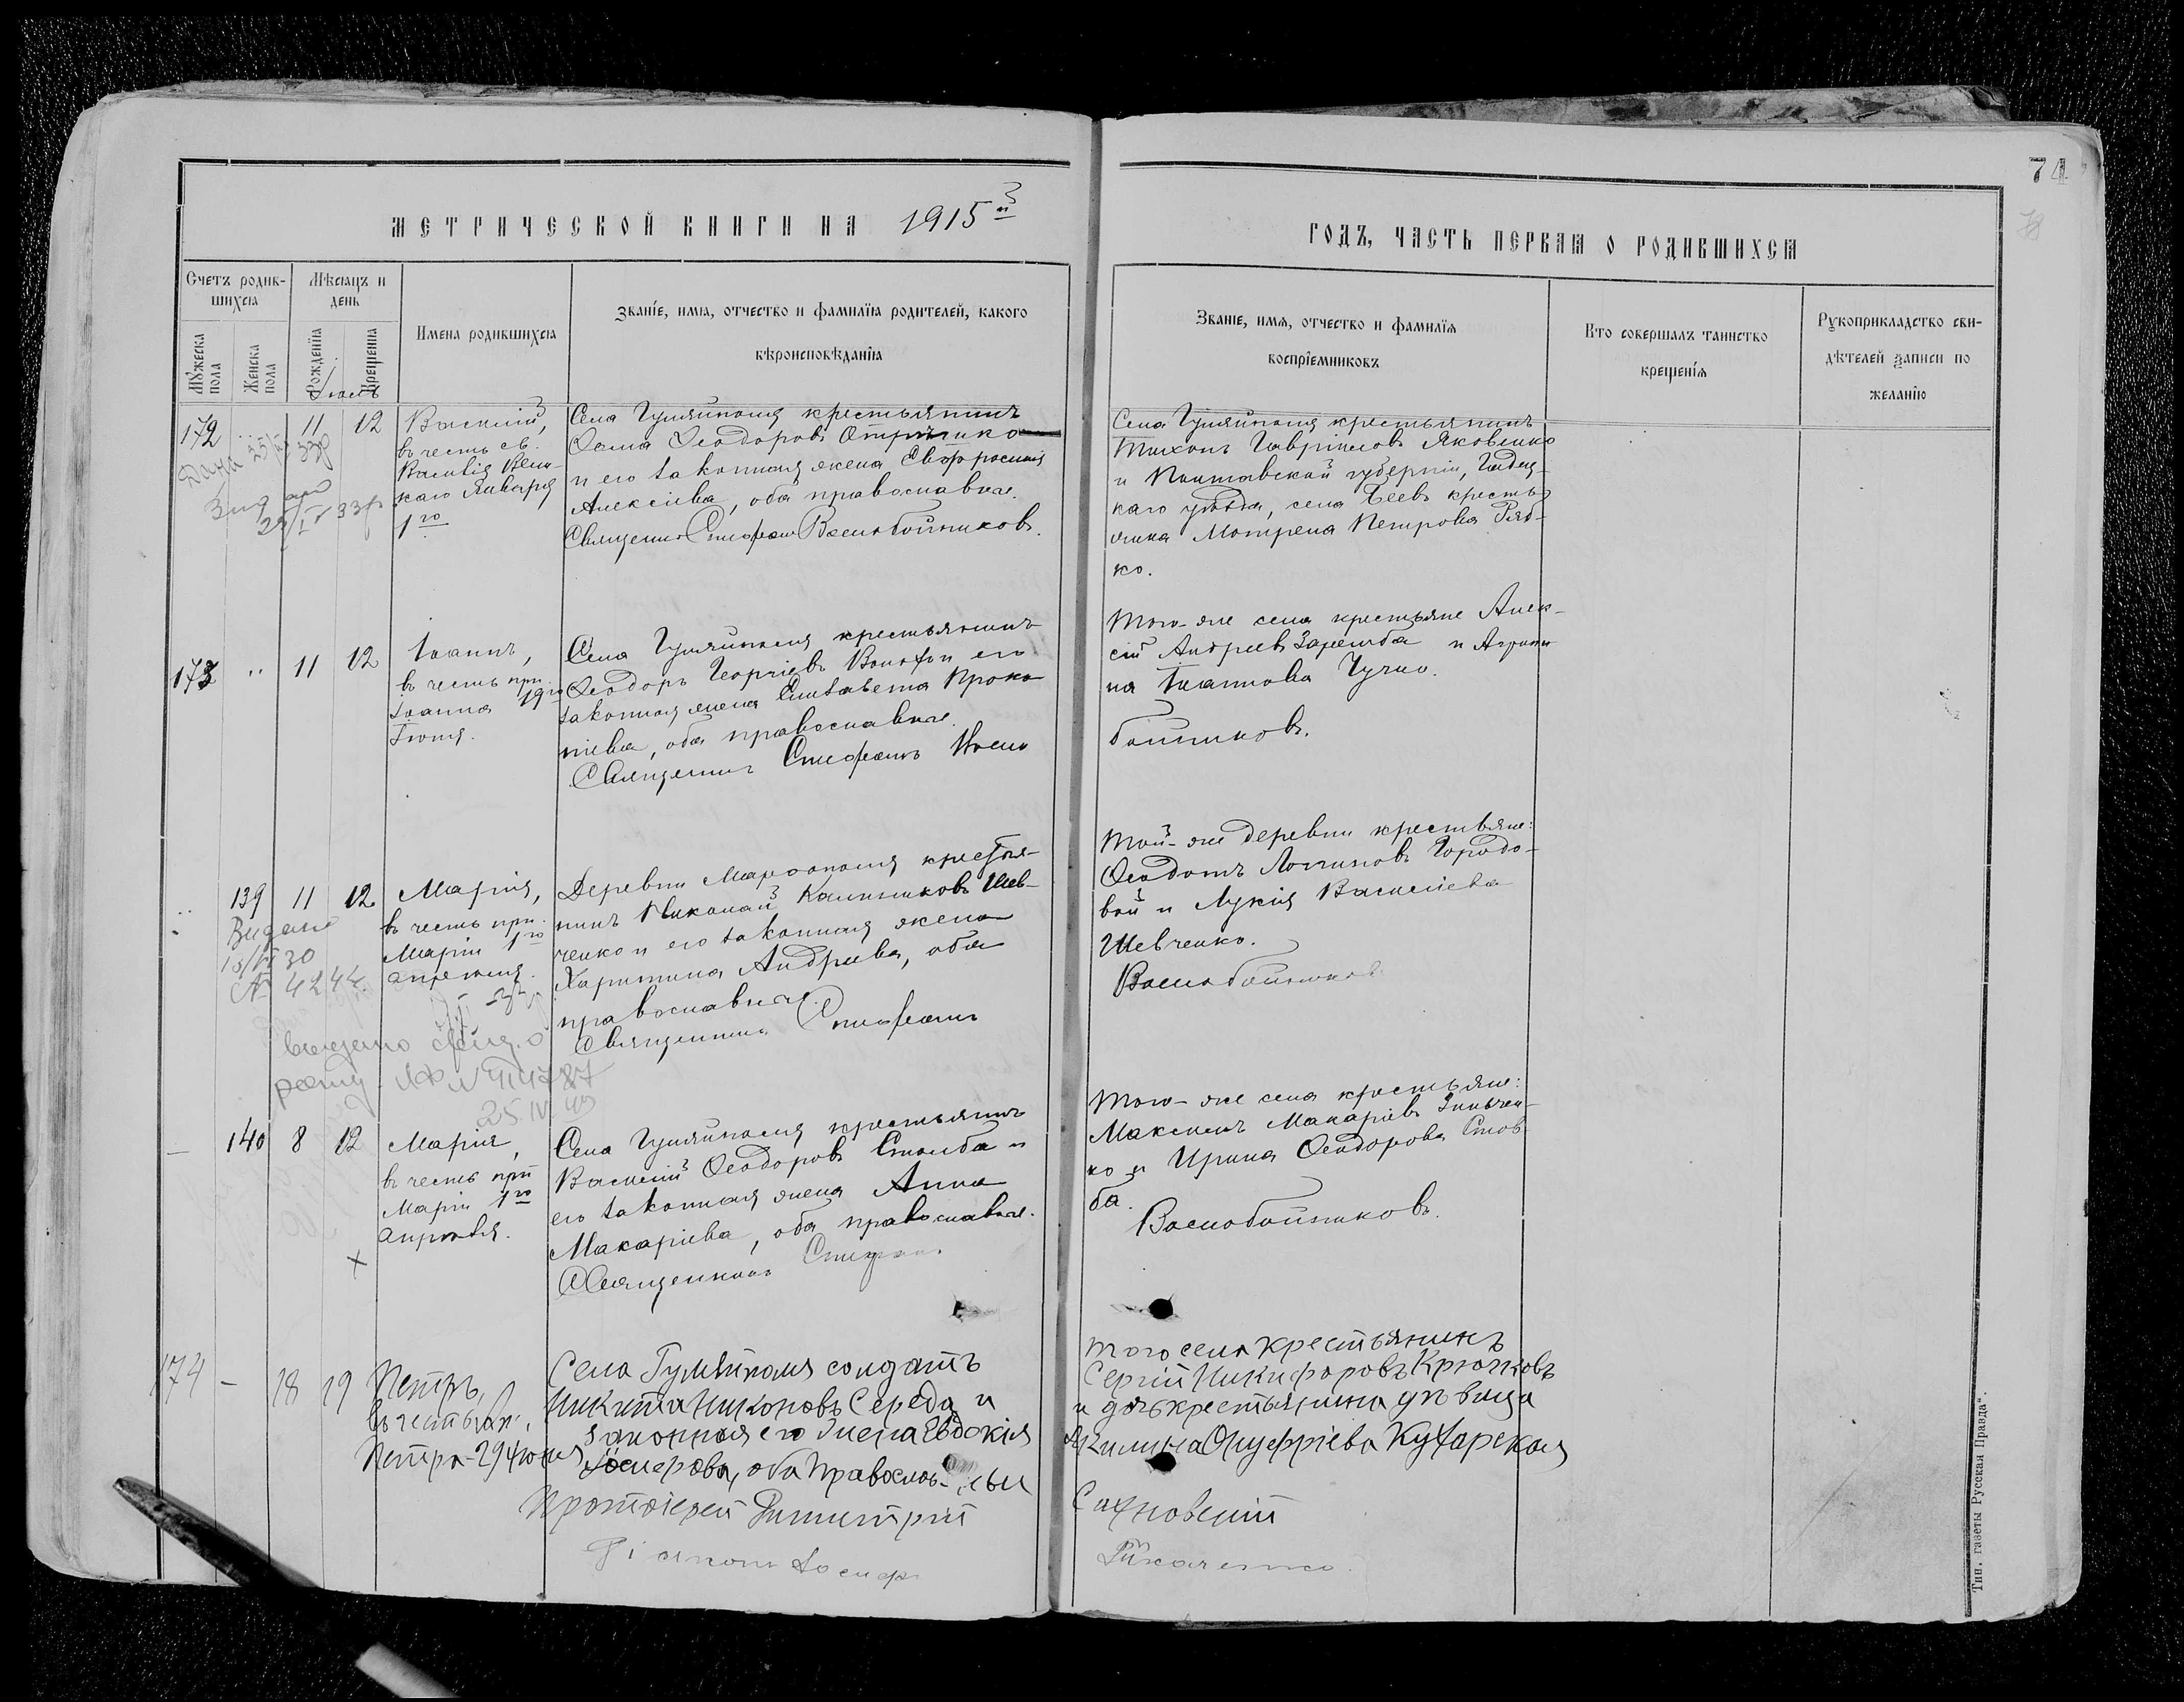 74
МЕТРИЧЕСКОЙ КНИГИ НА 1915й
ГОДЪ, ЧАСТЬ ПЕРВАЯ О РОДИВШИХСЯ
Счетъ родив-
шихся
Мужеска пола
Женска пола
Мѣсяцъ и
день
Рожденія
Крещенія
Имена родившихся
Званіе, имя, отчество и фамилія родителей, какого
вѣроисповѣданія
Званіе, имя, отчество и фамилія
воспріемниковъ
Кто совершалъ таинство
крещенія
Рукоприкладство сви-
дѣтелей записи по
желанію
172 .. 11 12
Василій,
въ честь св.
Василія Вели-
каго Января
1го
Села Гуляйполя крестьянинъ
Ѳеодоровъ
и его законная жена Евфросинія
Алексіева, оба православные.
Священникъ Стефанъ Воскобойниковъ.
Села Гуляйполя крестьянинъ
Тихонъ Гавріиловъ Яковенко
и Полтавской губерніи, Гадяч-
каго уѣзда, села Беевъ кресть-
янка Мотрена Петрова Ряб-
ко.
173 .. 11 12
Іоаннъ,
въ честь прп.
Іоанна 19го
Іюня.
Села Гуляйполя крестьянинъ
Ѳеодоръ Георгіевъ и его
законная жена Елизавета Проко-
піева, оба православные.
Священникъ Стефанъ Воско
Того-же села крестьяне Алек-
сій Андреевъ Заремба и Агрипи-
на Іоаннова Чучко.
бойниковъ.
.. 139 11 12
Видано
10/IV 30
№ 4244.
Марія,
въ честь прп.
Маріи 1го
апреля.
Деревни Марѳополя крестья-
нинъ Николай Калиниковъ Шев-
ченко и его законная жена
Харитина Андреева, оба
православные.
Священникъ Стефанъ
Той-же деревни крестьяне:
Ѳеодотъ Логиновъ Городо-
вой и Лукія Василіева
Шевченко.
Воскобойниковъ
видано
№ 414787
25.IV.49
— 140 8 12
Марія,
въ честь прп
Маріи 1го
Апреля.
Села Гуляйполя крестьянинъ
Василій Ѳеодоровъ Столба и
его законная жена Анна
Макаріева, оба православные.
Священникъ Стефанъ
Того-же села крестьяне:
Максимъ Макаріевъ Зинчен-
ко и Ирина Ѳеодорова Стов-
ба.
Воскобойниковъ.
174 — 18 19
Петръ,
въ честь ап.
Петра-29 Іюня
Села Гуляйполя солдатъ
Никита Никоновъ Середа и
законная его жена Евдокія
оба Православные
Протоіерей Димитрій
Діаконъ Іосифъ
того села крестьянинъ
Сергій Никифоровъ Крючковъ
и дочь крестьянина дѣвица
Акилина Онуфріева Кухарская
Сахновскій
Ткаченко
Тип. газеты „Русская Правда“.